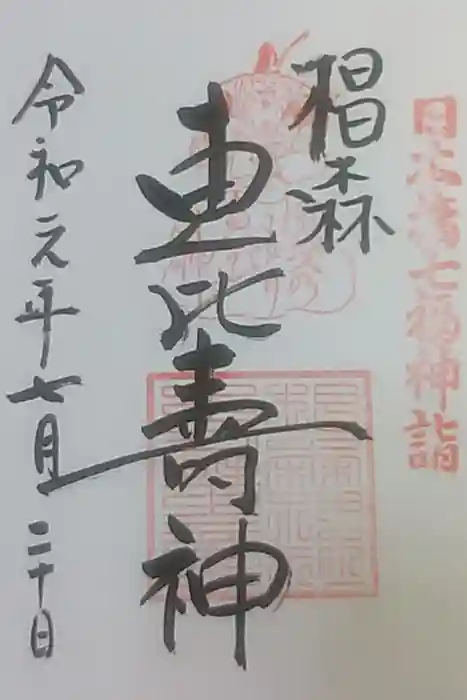 日本橋七福神詣
椙森
恵比寿神
令和元年七月二十日